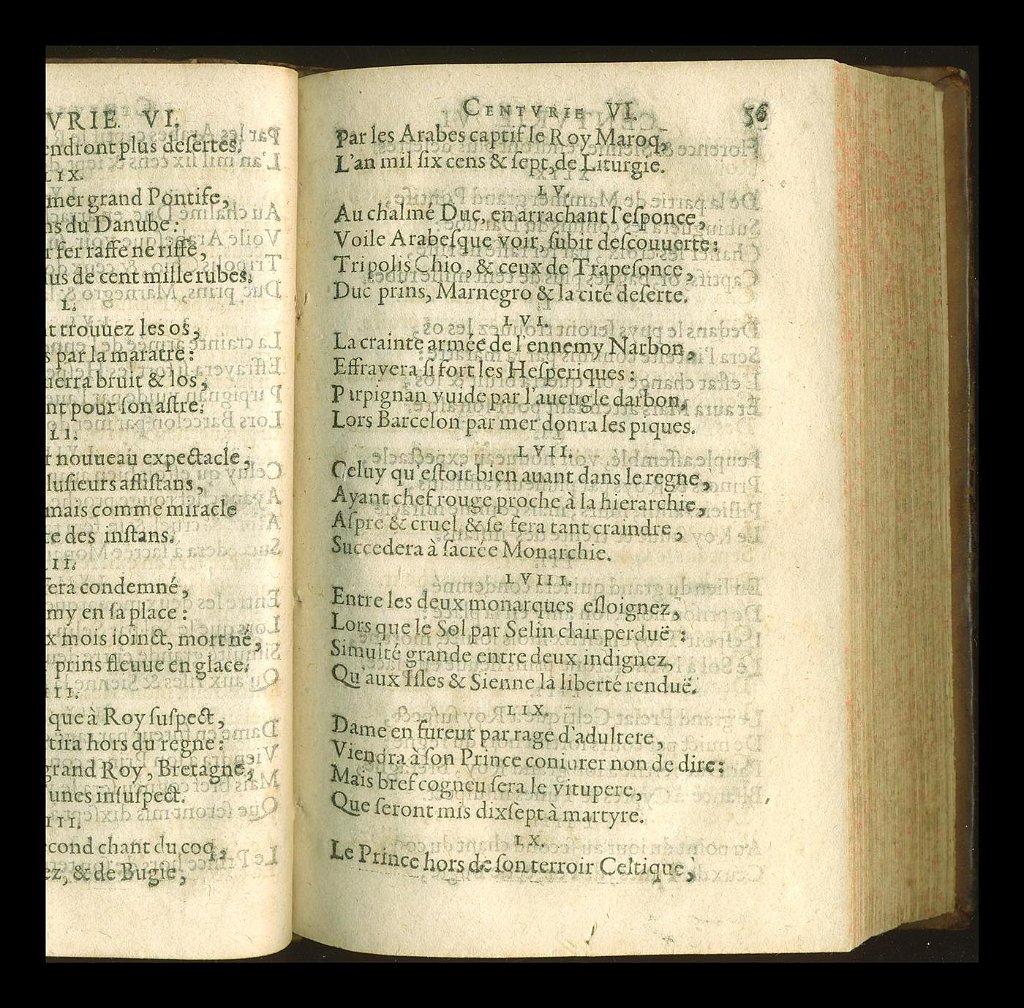 VRIE VI.
endront plus desertes.
LIX.
mer grand Pontife,
ns du Danube:
r fer raffe ne riffe,
lus de cent mille rubes.
L.
t trouuez les os,
s par la maratre:
uerra bruit & los,
nt pour son astre.
LI.
t nouueau expectacle,
lusieurs assistans,
mais comme miracle
te des instans.
II.
sera condemné,
my en sa place:
x mois ioinct, mort né,
prins fleuue en glace.
III.
que à Roy suspect,
rtira hors du regne:
grand Roy, Bretagne,
unes insuspect.
IIII.
econd chant du coq,
ez, & de Bugie,
CENTVRIE VI. 56
Par les Arabes captif le Roy Maroq,
L'an mil six cens & sept, de Liturgie.
LV.
Au chalmé Duc, en arrachant l'esponce,
Voile Arabesque voir, subit descouuerte:
Tripolis Chio, & ceux de Trapesonce,
Duc prins, Marnegro & la cité deserte.
LVI.
La crainte armée de l'ennemy Narbon,
Effrayera si fort les Hesperiques:
Pirpignan vuide par l'aueugle darbon,
Lors Barcelon par mer donra les piques.
LVII.
Celuy qu'estoit bien auant dans le regne,
Ayant chef rouge proche à la hierarchie,
Aspre & cruel, & se fera tant craindre,
Succedera à sacrée Monarchie.
LVIII.
Entre les deux monarques esloignez,
Lors que le Sol par Selin clair perduë:
Simulté grande entre deux indignez,
Qu'aux Isles & Sienne la liberté renduë.
LIX.
Dame en fureur par rage d'adultere,
Viendra à son Prince coniurer non de dire:
Mais bref cogneu sera le vitupere,
Que seront mis dixsept à martyre.
LX.
Le Prince hors de son terroir Celtique,